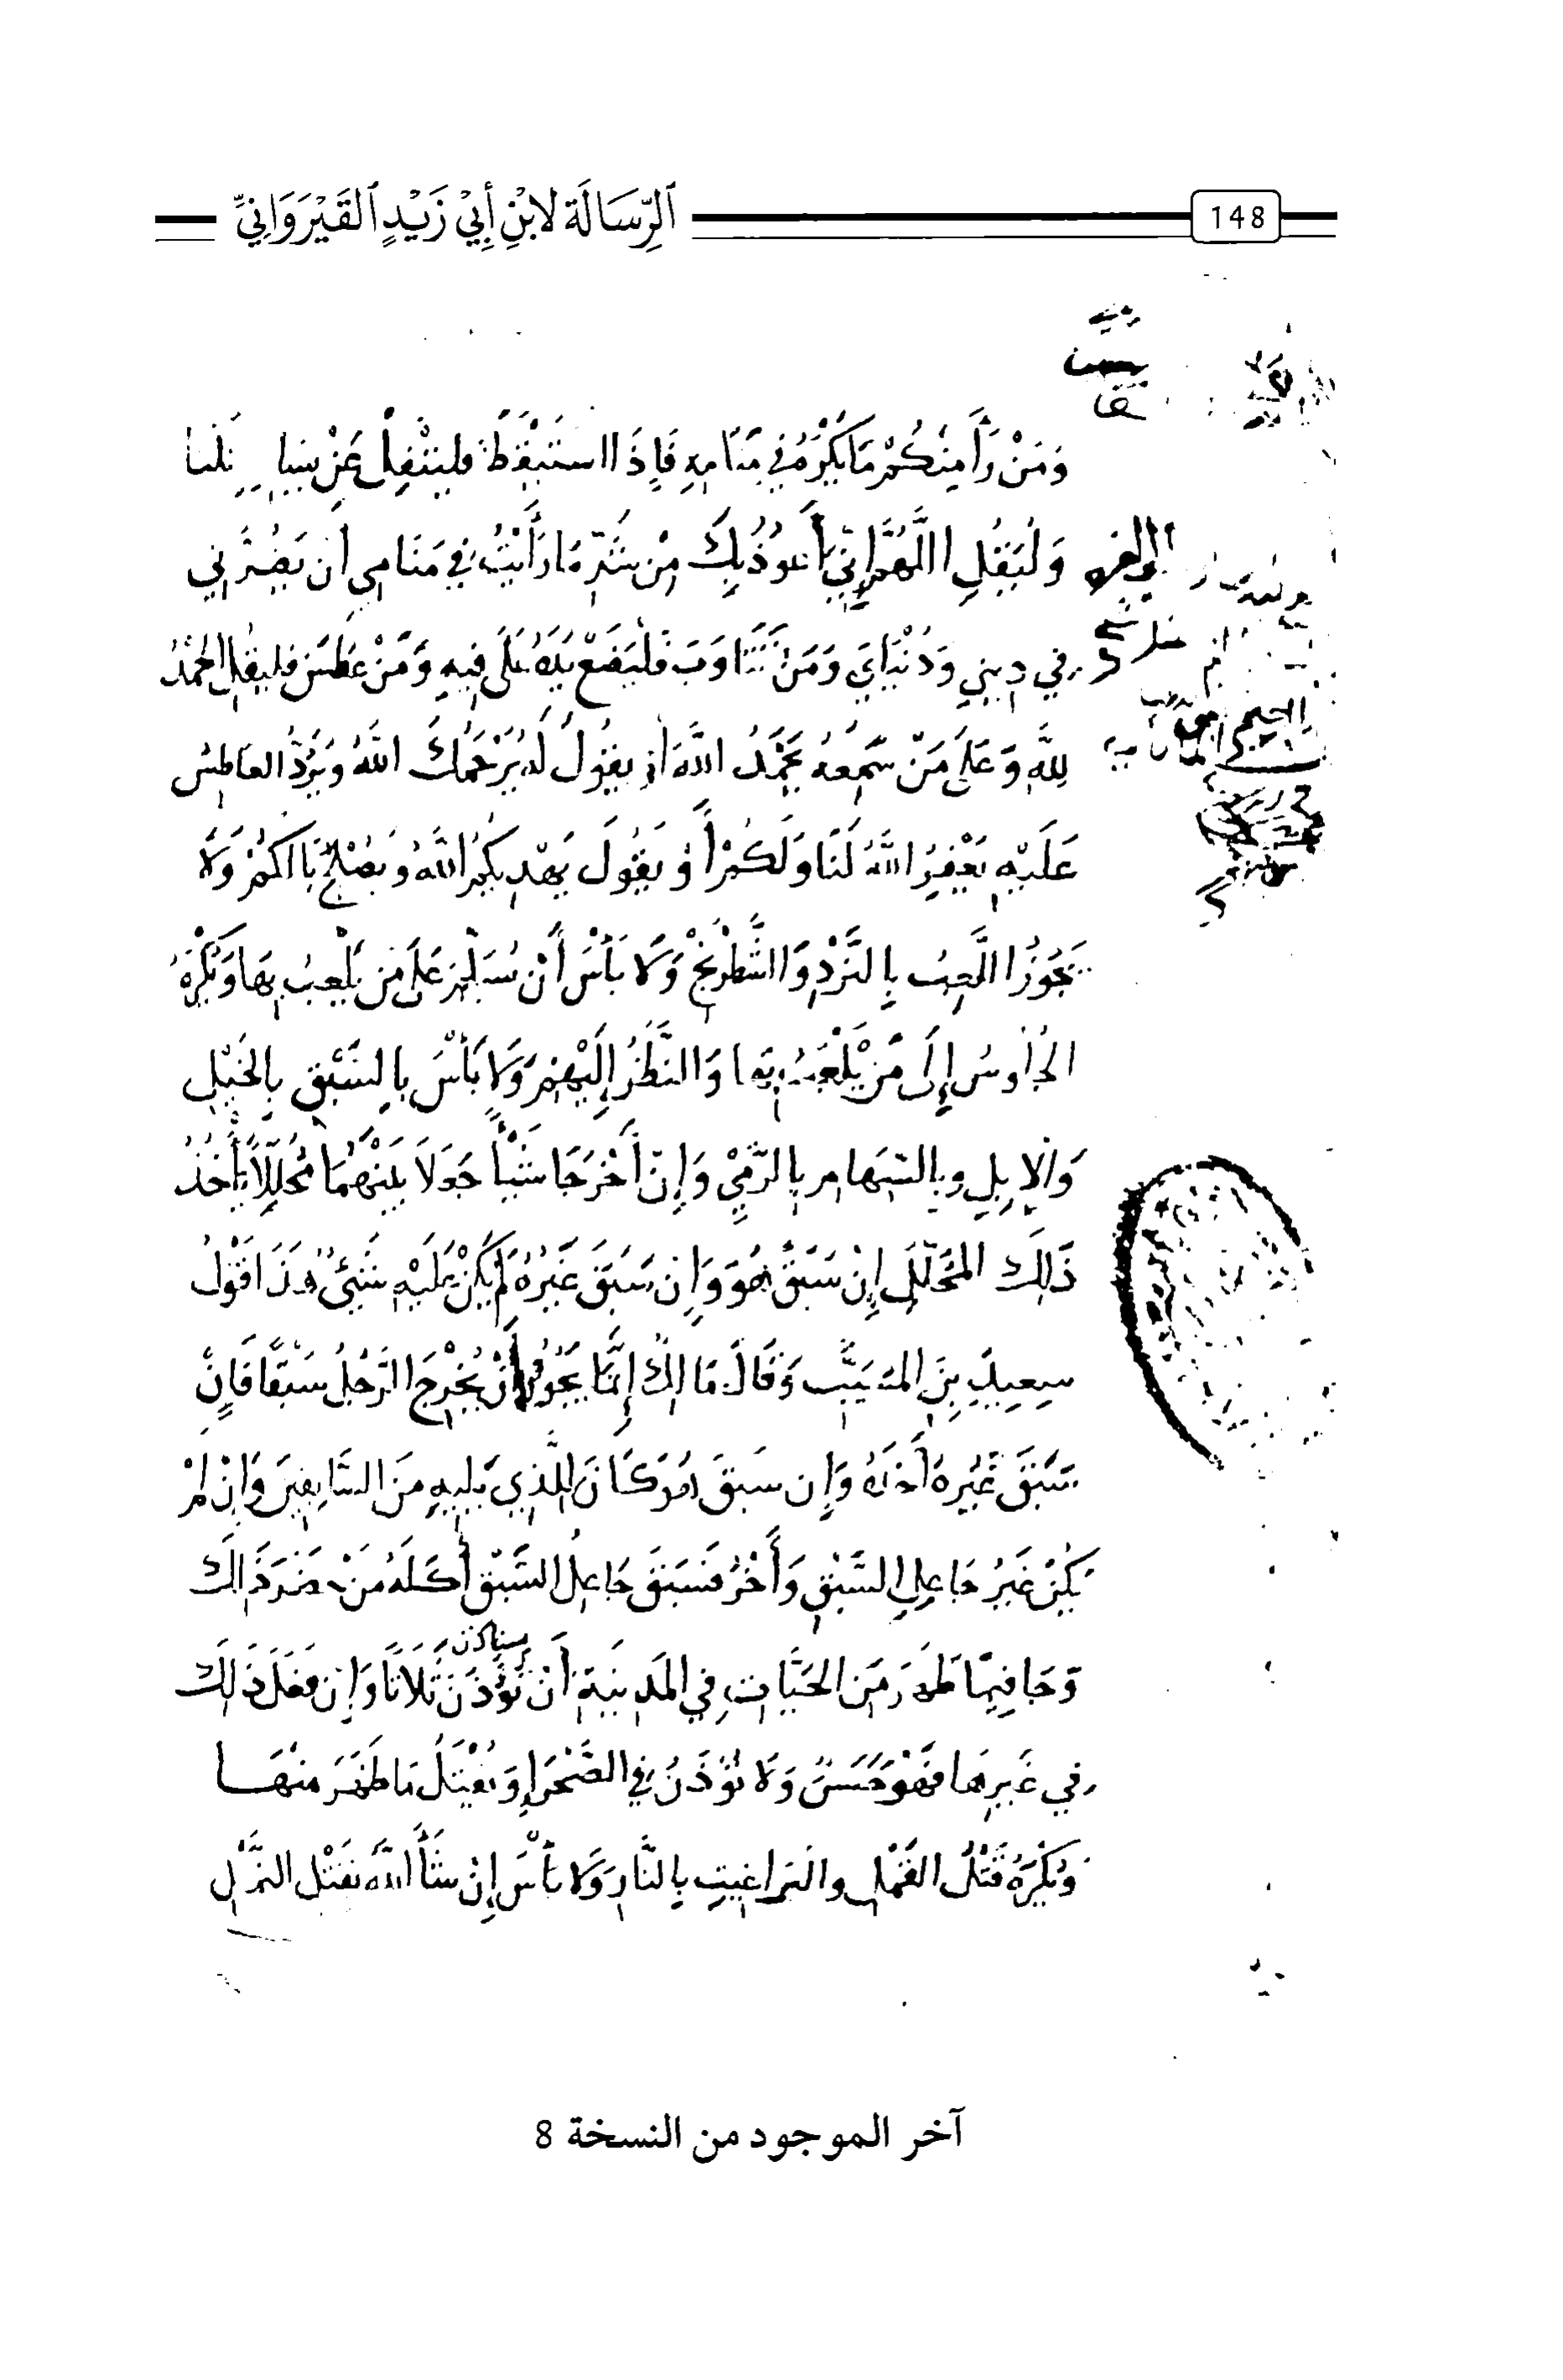 148
ٱلرِّسَالَة لابْنِ أَبِيْ زَيْدٍ ٱلقَيْرَوَانِيِّ
وَمَنْ رَأَى مِنْكُمْ مَا يَكْرَهُ فِي مَنَامِهِ فَإِذَا اسْتَيْقَظَ فليتْفِلْ عَنْ يسارِهِ ثلثا
وَلْيَقُلِ اللَّهُمَّ إِنِّي أَعُوذُ بِكَ مِنْ شَرِّ مَا رَأَيْتُ فِي مَنَامِي أَن يَضُرَّنِي
فِي دِينِي وَدُنْيَايَ وَمَنْ تَثَاوَبَ فَلْيَضَعْ يَدَهُ عَلَى فِيهِ وَمَنْ عَطَسَ فليقُلِ الْحَمْدُ
لِلَّهِ وَعَلَى مَنْ سَمِعَهُ يَحْمَدُ اللَّهَ أن يقُولَ لَهُ يَرْحَمُكَ اللَّهُ وَيَرُدُّ العَاطِسُ
عَلَيْهِ يَغْفِرُ اللَّهُ لَنَا وَلَكُمْ أَوْ يَقُولَ يَهْدِيكُمُ اللَّهُ وَيُصْلِحُ بَالَكُمْ وَلَا
يَجُوزُ اللَّعِبُ بِالنَّرْدِ وَالشَّطْرَنْجِ وَلَا بَأْسَ أَنْ يُسَلَّمَ عَلَى مَن يَلْعَبُ بِهَا وَيُكْرَهُ
الجُلوسُ إِلَى مَنْ يَلْعَبُ بِهَا وَالنَّظَرُ إِلَيْهِمْ وَلَا بَأْسَ بِالسَّبْقِ بِالخَيْلِ
وَالإِبِلِ وبِالسِّهَامِ بِالرَّمْيِ وَإِنْ أَخْرَجَا شَيْئاً جَعَلَا بَيْنَهُمَا مُحَلِّلاً يَأْخُذُ
ذَلِكَ المُحَلِّلُ إِنْ سَبَقَ هُوَ وَإِن سَبَقَ غَيْرُهُ لَمْ يَكُنْ عَلَيْهِ شَيْئٌ هَذَا قَوْلُ
سعِيدِ بْنِ المسَيَّبِ وَقَالَ مَالِكٌ إِنَّمَا يَجُوزُ أَنْ يُخْرِجَ الرَّجُلُ سَبَقًا فَإِنْ
سَبَقَ غَيْرُهُ أَخَذَهُ وَإِن سَبَقَ هُوَ كَانَ لِلَّذِي يَلِيهِ مِنَ السَّابِقِينَ وَإِنْ لَمْ
يَكُنْ غَيْرُ جَاعِلِ السَّبْقِ وَأَخَرُ فَسَبَقَ جَاعِلُ السَّبْقِ أَكَلَهُ مَنْ حَضَرَ ذَالِكَ
وَجَا فِيمَا ظَهَرَ مِنَ الحَيَّاتِ فِي المَدِينَةِ أَنْ تُؤْذَنَ ثَلَاثًا وَإِن فَعَلَ ذَلِكَ
فِي غَيرِهَا فَهْوَ حَسَنٌ وَلَا تُؤْذَنُ فِي الصَّحْرَاءِ وَيُقْتَلُ مَا ظَهَرَ مِنْهَا
وَيُكْرَهُ قَتْلُ القَمْلِ والبَرَاغِيثِ بِالنَّارِ وَلَا بَأْسَ إِنْ شَأَ اللَّهُ بقَتْلِ النَّمْلِ
آخر الموجود من النسخة 8